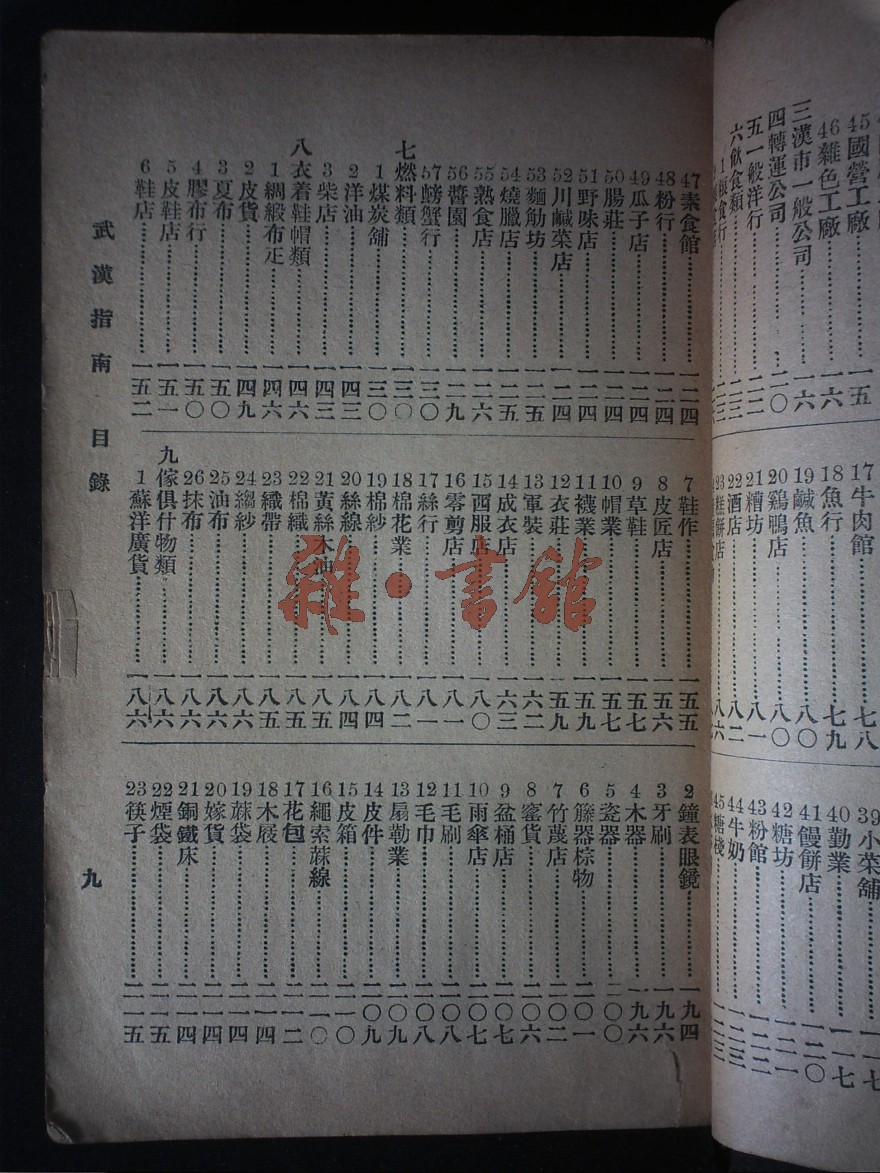 45國營工廠……一五
46雜色工廠……一六
三漢市一般公司……一六
四轉運公司……二〇
五一般洋行……二一
六飲食類……二三
17牛肉館……七八
18魚行……七九
19鹹魚……八〇
20鷄鴨店……八〇
21糟坊……八一
22酒店……八二
23糕餅店……八六
39小菜舖……一一七
40勤業……一一七
41饅餅店……一二〇
42糖坊……一二一
43粉館……一二二
44牛奶……一二三
45糖棧……一二三
47素食館……一二四
48粉行……一二四
49瓜子店……一二四
50腸莊……一二四
51野味店……一二四
52川鹹菜店……一二四
53麵觔坊……一二五
54燒臘店……一二五
55熟食店……一二六
56醬園……一二九
57螃蟹行……一三〇
七燃料類……一三〇
1煤炭舖……一三〇
2洋油……一四三
3柴店……一四三
八衣着鞋帽類……一四六
1綢緞布疋……一四六
2皮貨……一四九
3夏布……一五〇
4膠布行……一五〇
5皮鞋店……一五一
6鞋店……一五二
7鞋作……一五五
8皮匠店……一五六
9草鞋……一五七
10帽業……一五七
11襪業……一五九
12衣莊……一五九
13軍裝……一六二
14成衣店……一六三
15西服店……一八〇
16零剪店……一八一
17絲行……一八一
18棉花業……一八二
19棉紗……一八四
20絲線……一八四
21黃絲木油……一八五
22棉織……一八五
23織帶……一八五
24縐紗……一八六
25油布……一八六
26抹布……一八六
九傢俱什物類……一八六
1蘇洋廣貨……一八六
2鐘表眼鏡……一九四
3牙刷……一九六
4木器……一九六
5瓷器……二〇〇
6籐器棕物……二〇一
7竹蔑店……二〇二
8窰貨……二〇六
9盆桶店……二〇七
10雨傘店……二〇七
11毛刷……二〇八
12毛巾……二〇八
13扇勒業……二〇九
14皮件……二〇九
15皮箱……二一〇
16繩索蔴線……二一〇
17花包……二一二
18木屐……二一四
19蔴袋……二一四
20嫁貨……二一四
21銅鐵床……二一四
22煙袋……二一五
23筷子……二一五
武漢指南 目錄
九
雜·書館